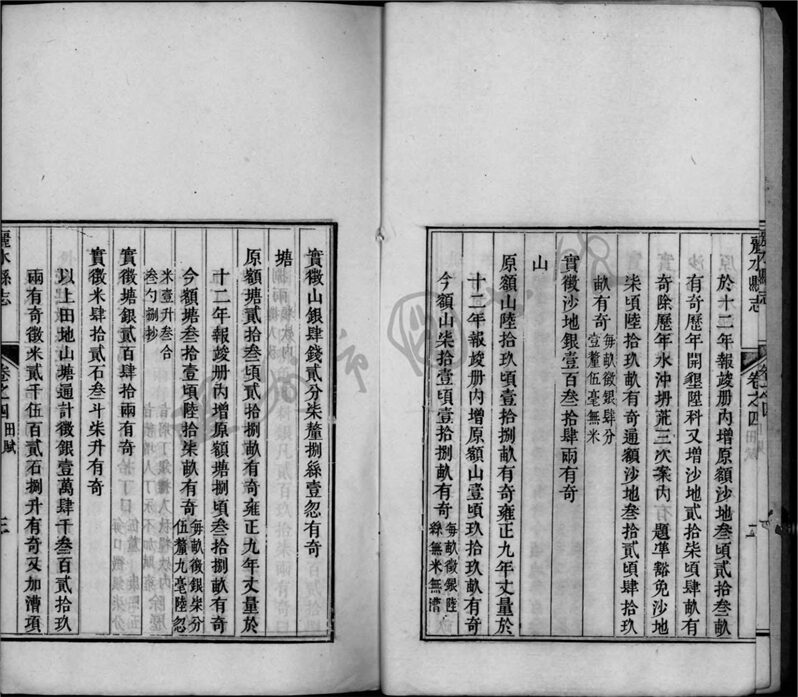 麗水縣志
卷之四
田賦
於十二年報竣册內增原額沙地叁頃貳拾叁畝
有奇歷年開墾陞科又增沙地貳拾柒頃肆畝有
奇除歷年水沖坍荒三次案內 題凖豁免沙地
柒頃陸拾玖畝有奇通額沙地叁拾貳頃肆拾玖
畝有奇 每畝徵銀肆分
壹釐伍毫無米
實徵沙地銀壹百叁拾肆兩有奇
山
原額山陸拾玖頃壹拾捌畝有奇雍正九年丈量於
十二年報竣册內增原額山壹頃玖拾玖畝有奇
今額山柒拾壹頃壹拾捌畝有奇 每畝徵銀陸
絲無米無漕
實徵山銀肆錢貳分柒釐捌絲壹忽有奇
塘
原額塘貳拾叁頃貳拾捌畝有奇雍正九年丈量於
十二年報竣册內增原額塘捌頃叁拾捌畝有奇
今額塘叁拾壹頃陸拾柒畝有奇 每畝徵銀柒分
伍釐九毫陸忽
米壹升叁合
叁勺捌抄
實徵塘銀貳百肆拾兩有奇
實徵米肆拾貳石叁斗柒升有奇
以上田地山塘通計徵銀壹萬肆千叁百貳拾玖
兩有奇徵米貳千伍百貳石捌升有奇又加漕項
麗水縣志
卷之四
田賦
三